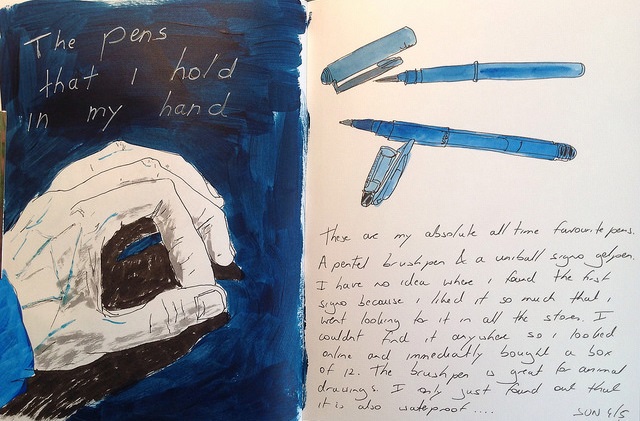 The pens
that I hold
in my hand
These are my absolute all time favourite pens.
A pentel brushpen & a uniball signo gelpen.
I have no idea where I found the first
signo because I liked it so much that I
went looking for it in all the stores. I
couldnt find it anywhere so I looked
online and immediatly bought a box
of 12. The brushpen is great for animal
drawings. I only just found out that
it is also waterproof....
SUN 4/5